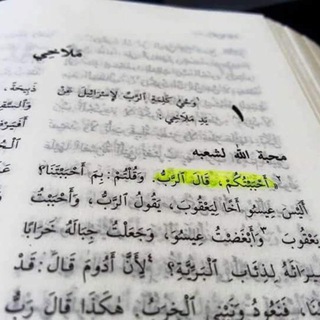 ملاخي
١
وَحْيُ كَلِمَةِ ٱلرَّبِّ لِإِسْرَائِيلَ عَنْ
يَدِ مَلَاخِي:
محبة الله لشعبه
«أَحْبَبْتُكُمْ، قَالَ ٱلرَّبُّ. وَقُلْتُمْ: بِمَ أَحْبَبْتَنَا؟
أَلَيْسَ عِيسُو أَخًا لِيَعْقُوبَ، يَقُولُ ٱلرَّبُّ، وَأَحْبَبْتُ
يَعْقُوبَ وَأَبْغَضْتُ عِيسُوَ، وَجَعَلْتُ جِبَالَهُ خَرَابًا
لِذِئَابِ ٱلْبَرِّيَّةِ؟ لِأَنَّ أَدُومَ قَالَ: قَدْ
فَنَعُودُ وَنَبْنِي ٱلْخِرَبَ. هَكَذَا قَالَ رَبُّ
ذَبِيحَةً.